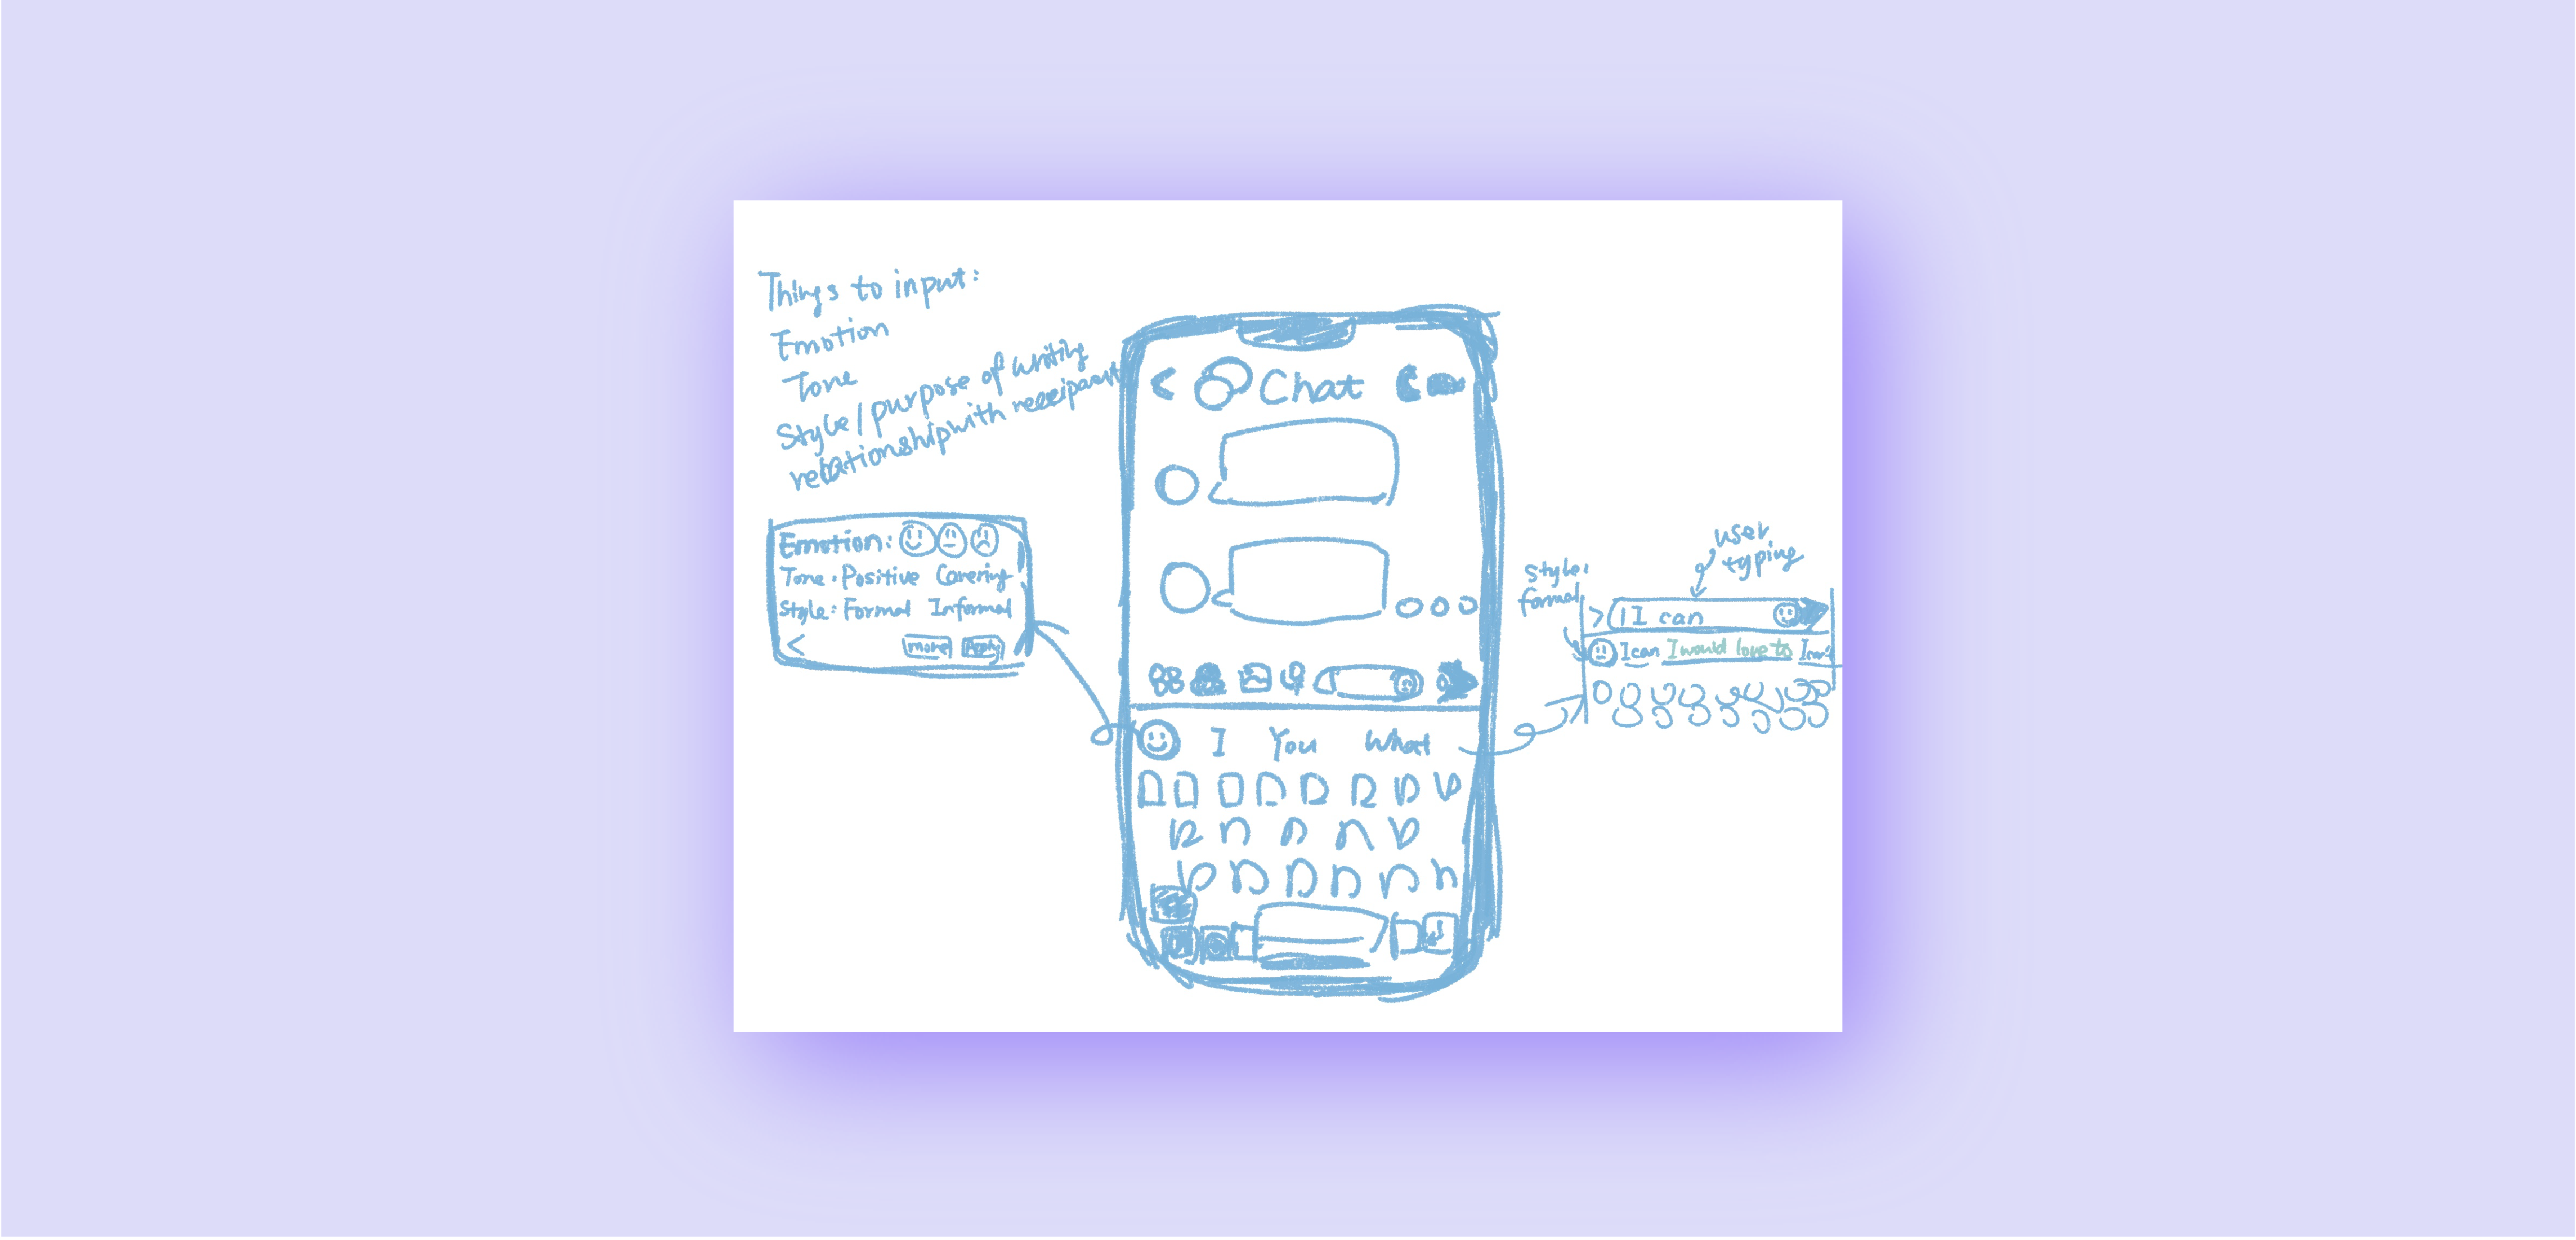 Things to input:
Emotion
Tone
Style/purpose of writing
relationship with receipant
Emotion:
Tone: Positive Covering
Style: Formal Informal
<
more Apply
< Chat
I You What
user
typing
style:
formal
> I can
I can I would love to